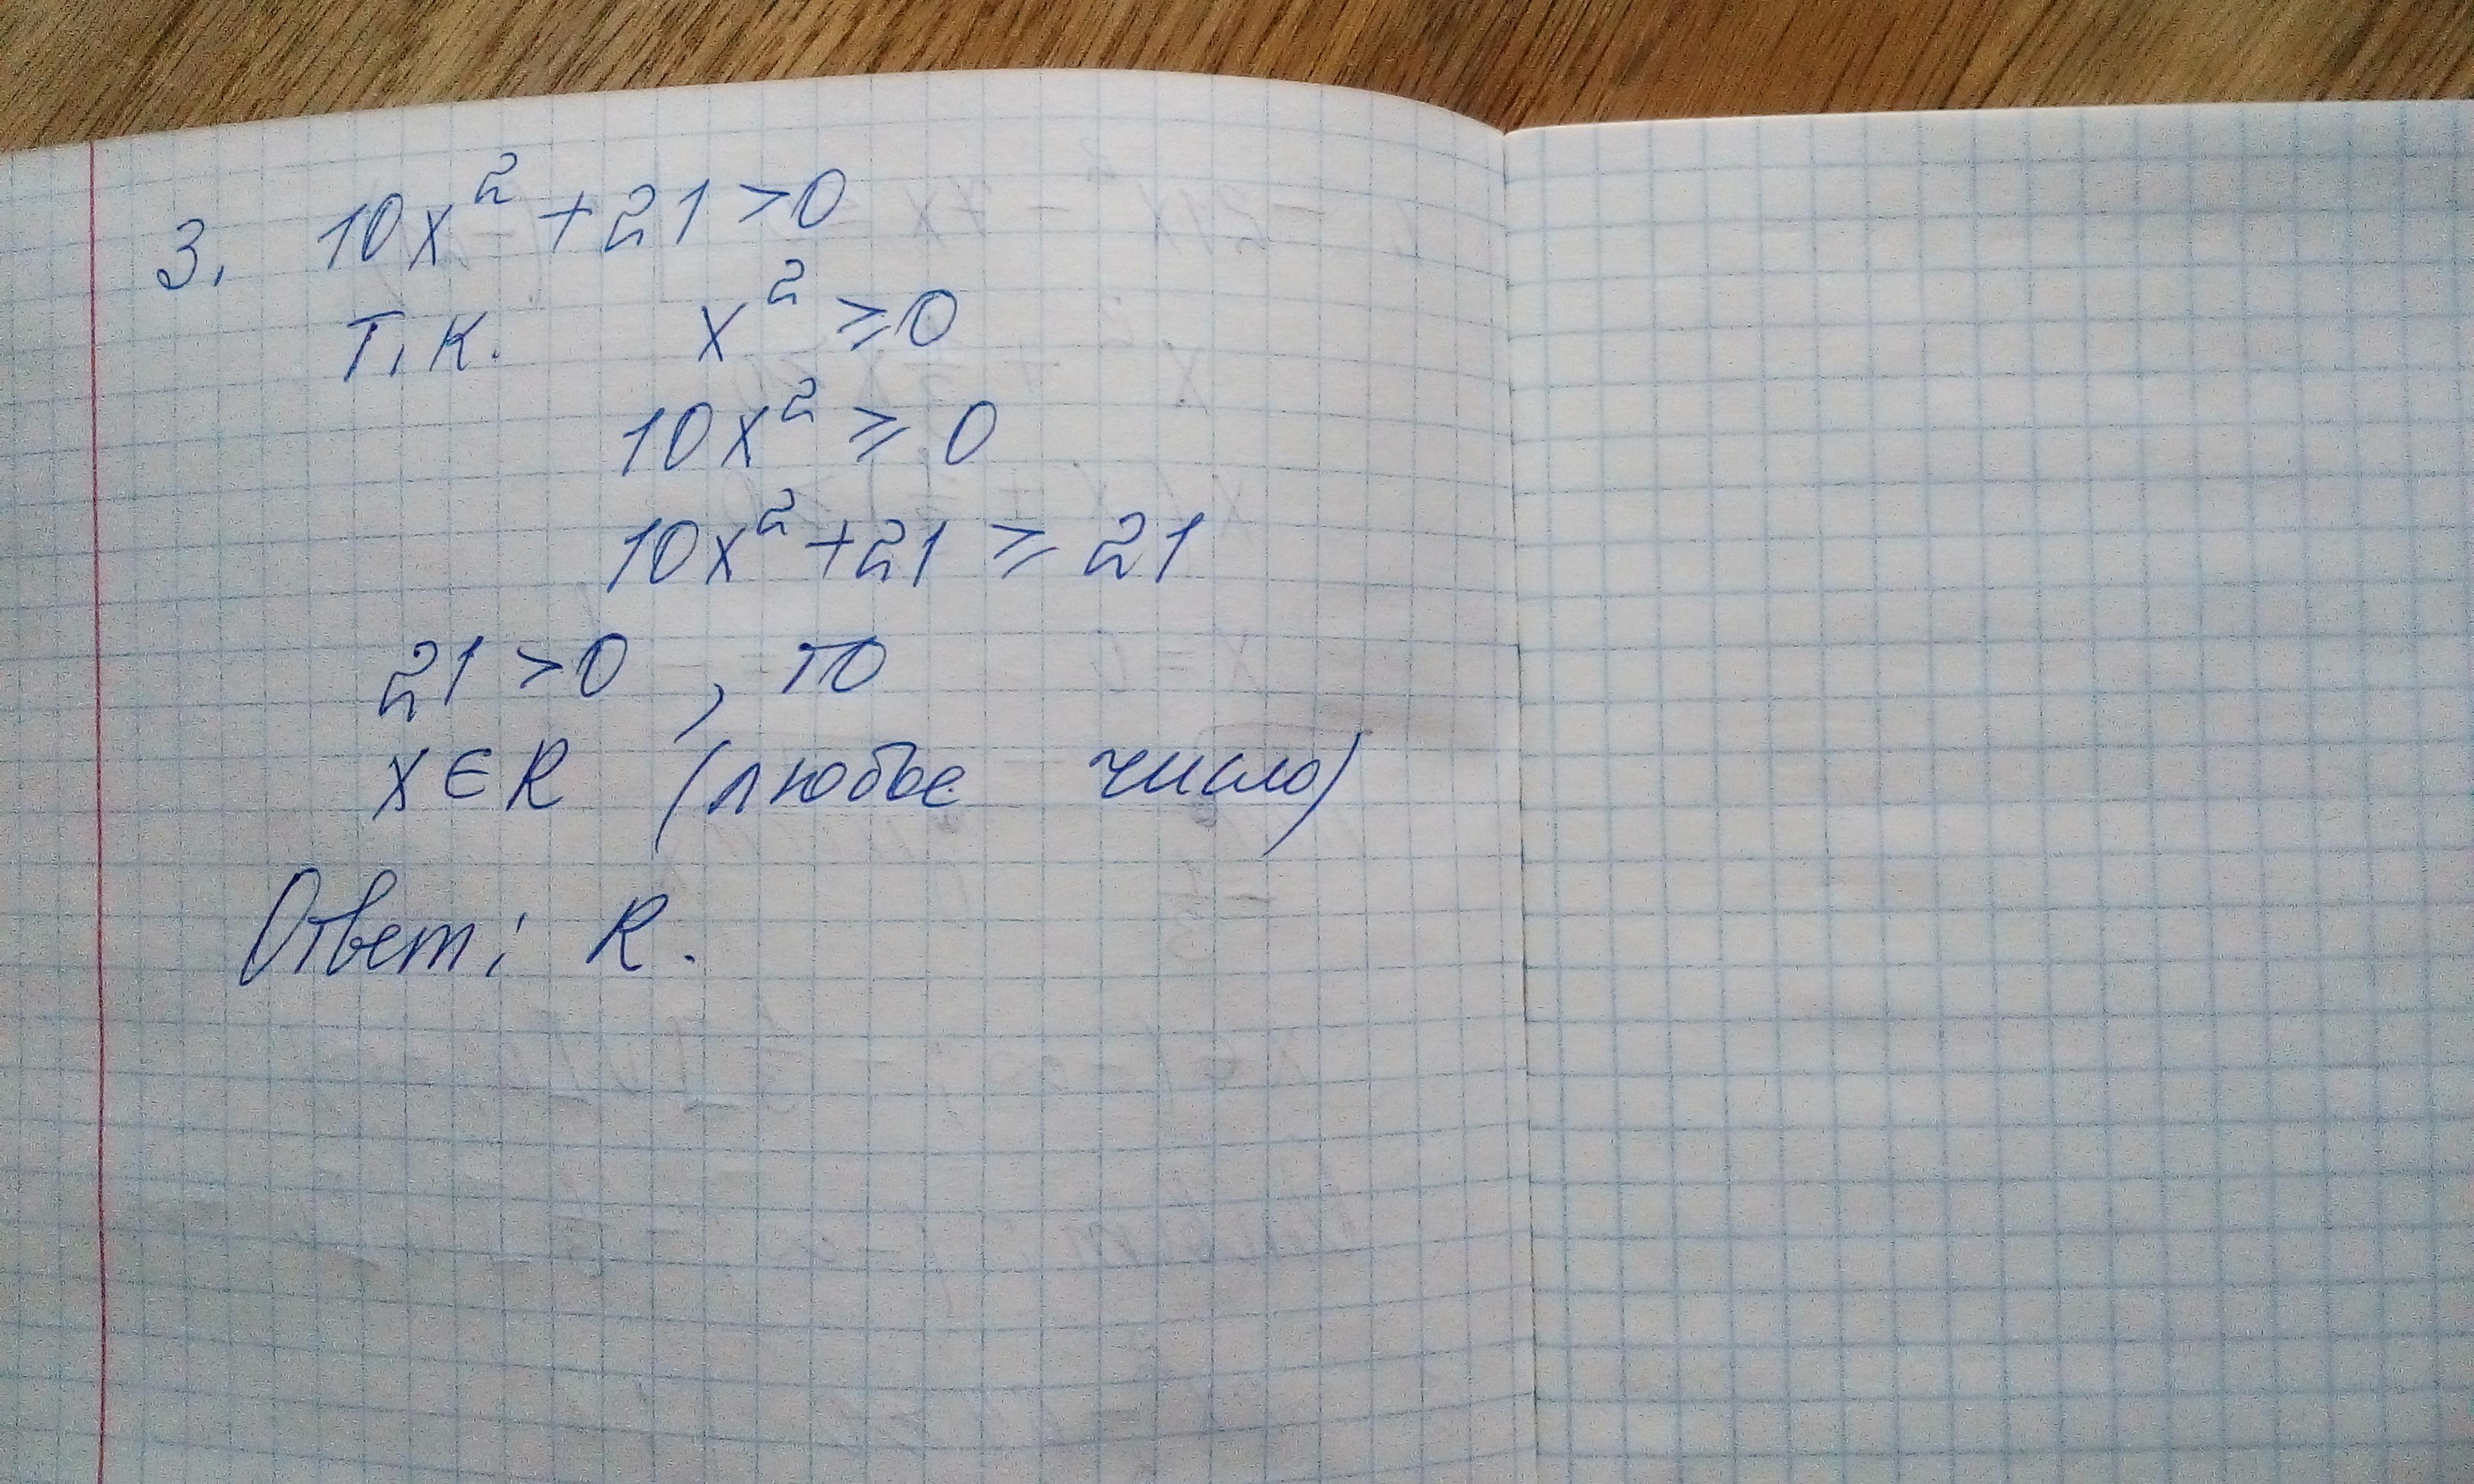 3. 10x² + 21 > 0
т.к. x² ⩾ 0
10x² ⩾ 0
10x² + 21 ⩾ 21
21 > 0, то
x ∈ R (любое число)
Ответ: R.